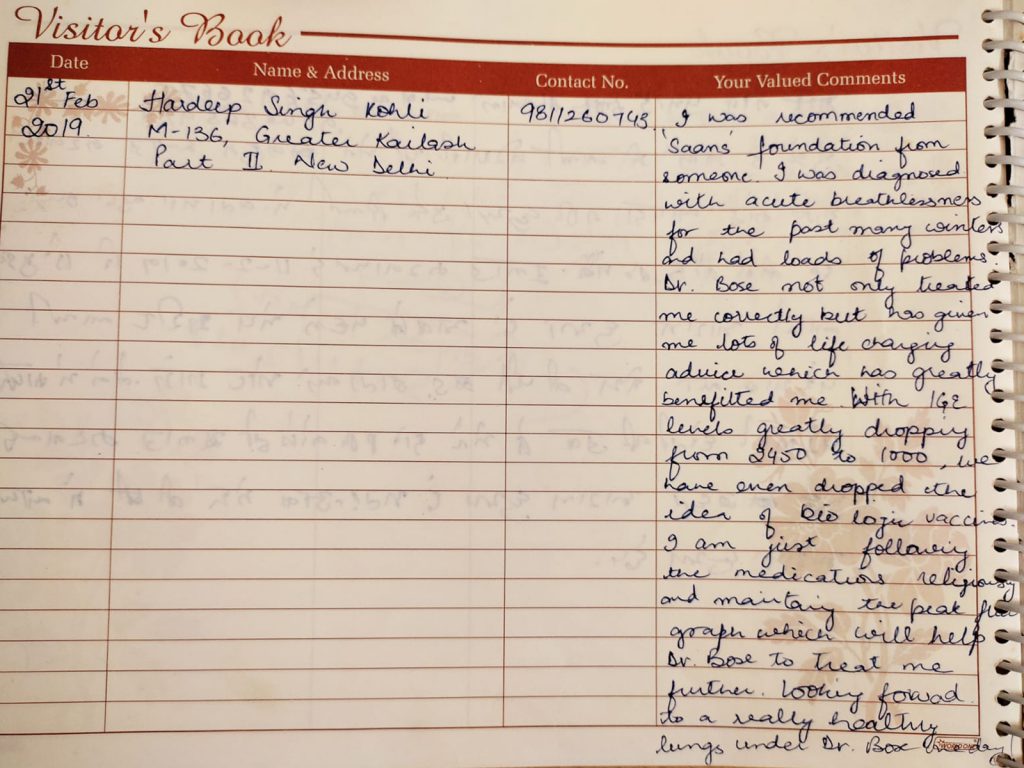 Visitor's Book
Date Name & Address Contact No. Your Valued Comments
21st Feb Hardeep Singh Kohli 9811260743 I was recommended
2019. M-136, Greater Kailash 'Saans' foundation from
Part II. New Delhi. someone. I was diagnosed
with acute breathlessness
for the past many winters
and had loads of problems.
Dr. Bose not only treated
me correctly but has given
me lots of life changing
advice which has greatly
benefitted me. With IGE
levels greatly dropping
from 2450 to 1000, we
have even dropped the
idea of bio logic vaccine.
I am just following
the medications religiously
and maintaing the peak flow
graph which will help
Dr. Bose to treat me
further. Looking forwad
to a really healthy
lungs under Dr. Bose